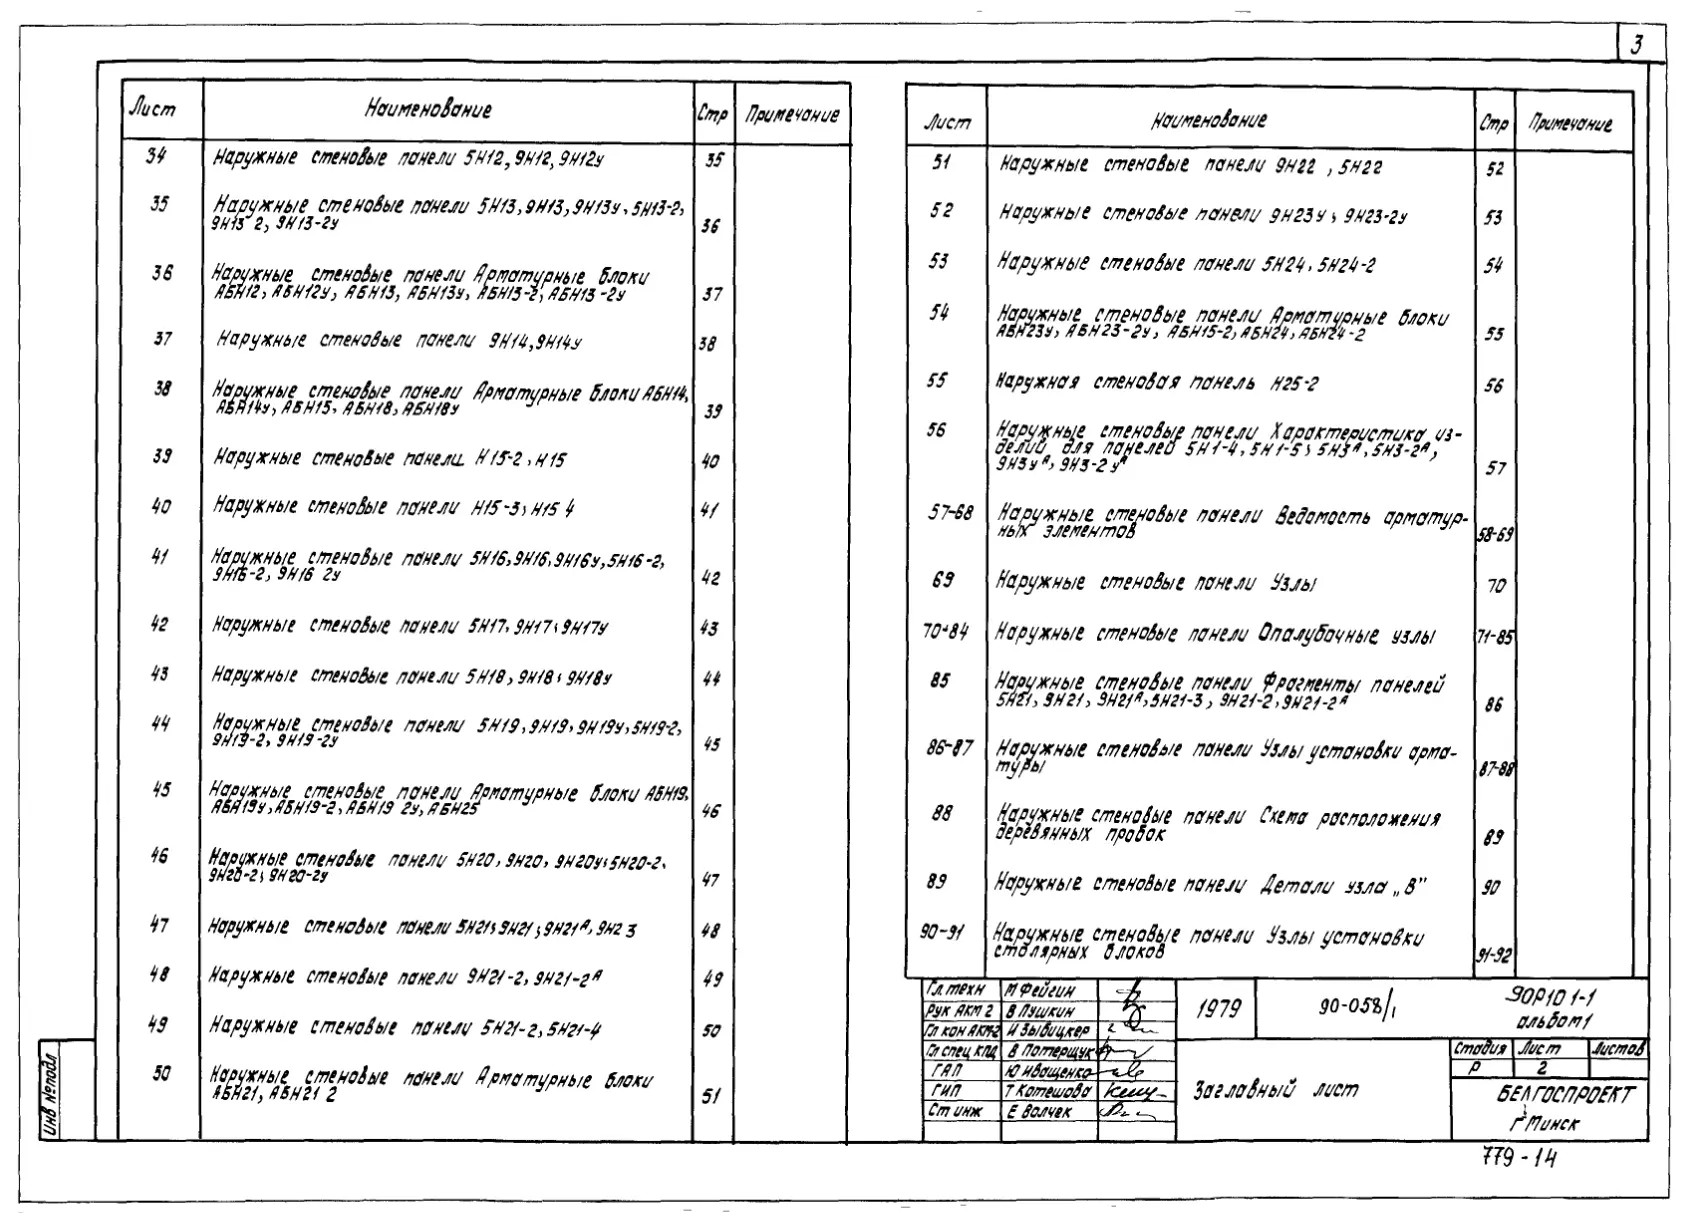 3
Лист Наименование Стр Примечание
34 Наружные стеновые панели 5Н12, 9Н12, 9Н12у 35
35 Наружные стеновые панели 5Н13, 9Н13, 9Н13у, 5Н13-2,
9Н13 2, 9Н13-2у 36
36 Наружные стеновые панели Арматурные блоки
АБН12, АБН12у, АБН13, АБН13у, АБН13-2, АБН13-2у 37
37 Наружные стеновые панели 9Н14, 9Н14у 38
38 Наружные стеновые панели Арматурные блоки АБН14,
АБН14у, АБН15, АБН18, АБН18у 39
39 Наружные стеновые панели Н15-2, Н15 40
40 Наружные стеновые панели Н15-3, Н15 4 41
41 Наружные стеновые панели 5Н16, 9Н16, 9Н16у, 5Н16-2,
9Н16-2, 9Н16 2у 42
42 Наружные стеновые панели 5Н17, 9Н17, 9Н17у 43
43 Наружные стеновые панели 5Н18, 9Н18, 9Н18у 44
44 Наружные стеновые панели 5Н19, 9Н19, 9Н19у, 5Н19-2,
9Н19-2, 9Н19-2у 45
45 Наружные стеновые панели Арматурные блоки АБН19,
АБН19у, АБН19-2, АБН19 2у, АБН25 46
46 Наружные стеновые панели 5Н20, 9Н20, 9Н20у, 5Н20-2,
9Н20-2, 9Н20-2у 47
47 Наружные стеновые панели 5Н21, 9Н21, 9Н21ᴬ, 9Н2 3 48
48 Наружные стеновые панели 9Н21-2, 9Н21-2ᴬ 49
49 Наружные стеновые панели 5Н21-2, 5Н21-4 50
50 Наружные стеновые панели Арматурные блоки
АБН21, АБН21 2 51
Лист Наименование Стр Примечание
51 Наружные стеновые панели 9Н22, 5Н22 52
52 Наружные стеновые панели 9Н23у, 9Н23-2у 53
53 Наружные стеновые панели 5Н24, 5Н24-2 54
54 Наружные стеновые панели Арматурные блоки
АБН23у, АБН23-2у, АБН15-2, АБН24, АБН24-2 55
55 Наружная стеновая панель Н25-2 56
56 Наружные стеновые панели Характеристика из-
делий для панелей 5Н1-4, 5Н1-5, 5Н3ᴬ, 5Н3-2ᴬ,
9Н3уᴬ, 9Н3-2уᴬ 57
57-68 Наружные стеновые панели Ведомость арматур-
ных элементов 58-69
69 Наружные стеновые панели Узлы 70
70-84 Наружные стеновые панели Опалубочные узлы 71-85
85 Наружные стеновые панели Фрагменты панелей
5Н21, 9Н21, 9Н21ᴬ, 5Н21-3, 9Н21-2, 9Н21-2ᴬ 86
86-87 Наружные стеновые панели Узлы установки арма-
туры 87-88
88 Наружные стеновые панели Схема расположения
деревянных пробок 89
89 Наружные стеновые панели Детали узла „В" 90
90-91 Наружные стеновые панели Узлы установки
столярных блоков 91-92
Гл.техн М Фейгин
Рук АКМ 2 В Пушкин
Гл кон АКМ-2 И Зывицкер
Гл спец КПД В Потерщук
ГАП Ю Иващенко
ГИП Т Котешова
Ст инж Е Волчек
1979 90-058/1 90Р10 1-1
альбом1
Заглавный лист
Стадия Лист Листов
Р 2
БЕЛГОСПРОЕКТ
г Минск
Инв №подл
779-14